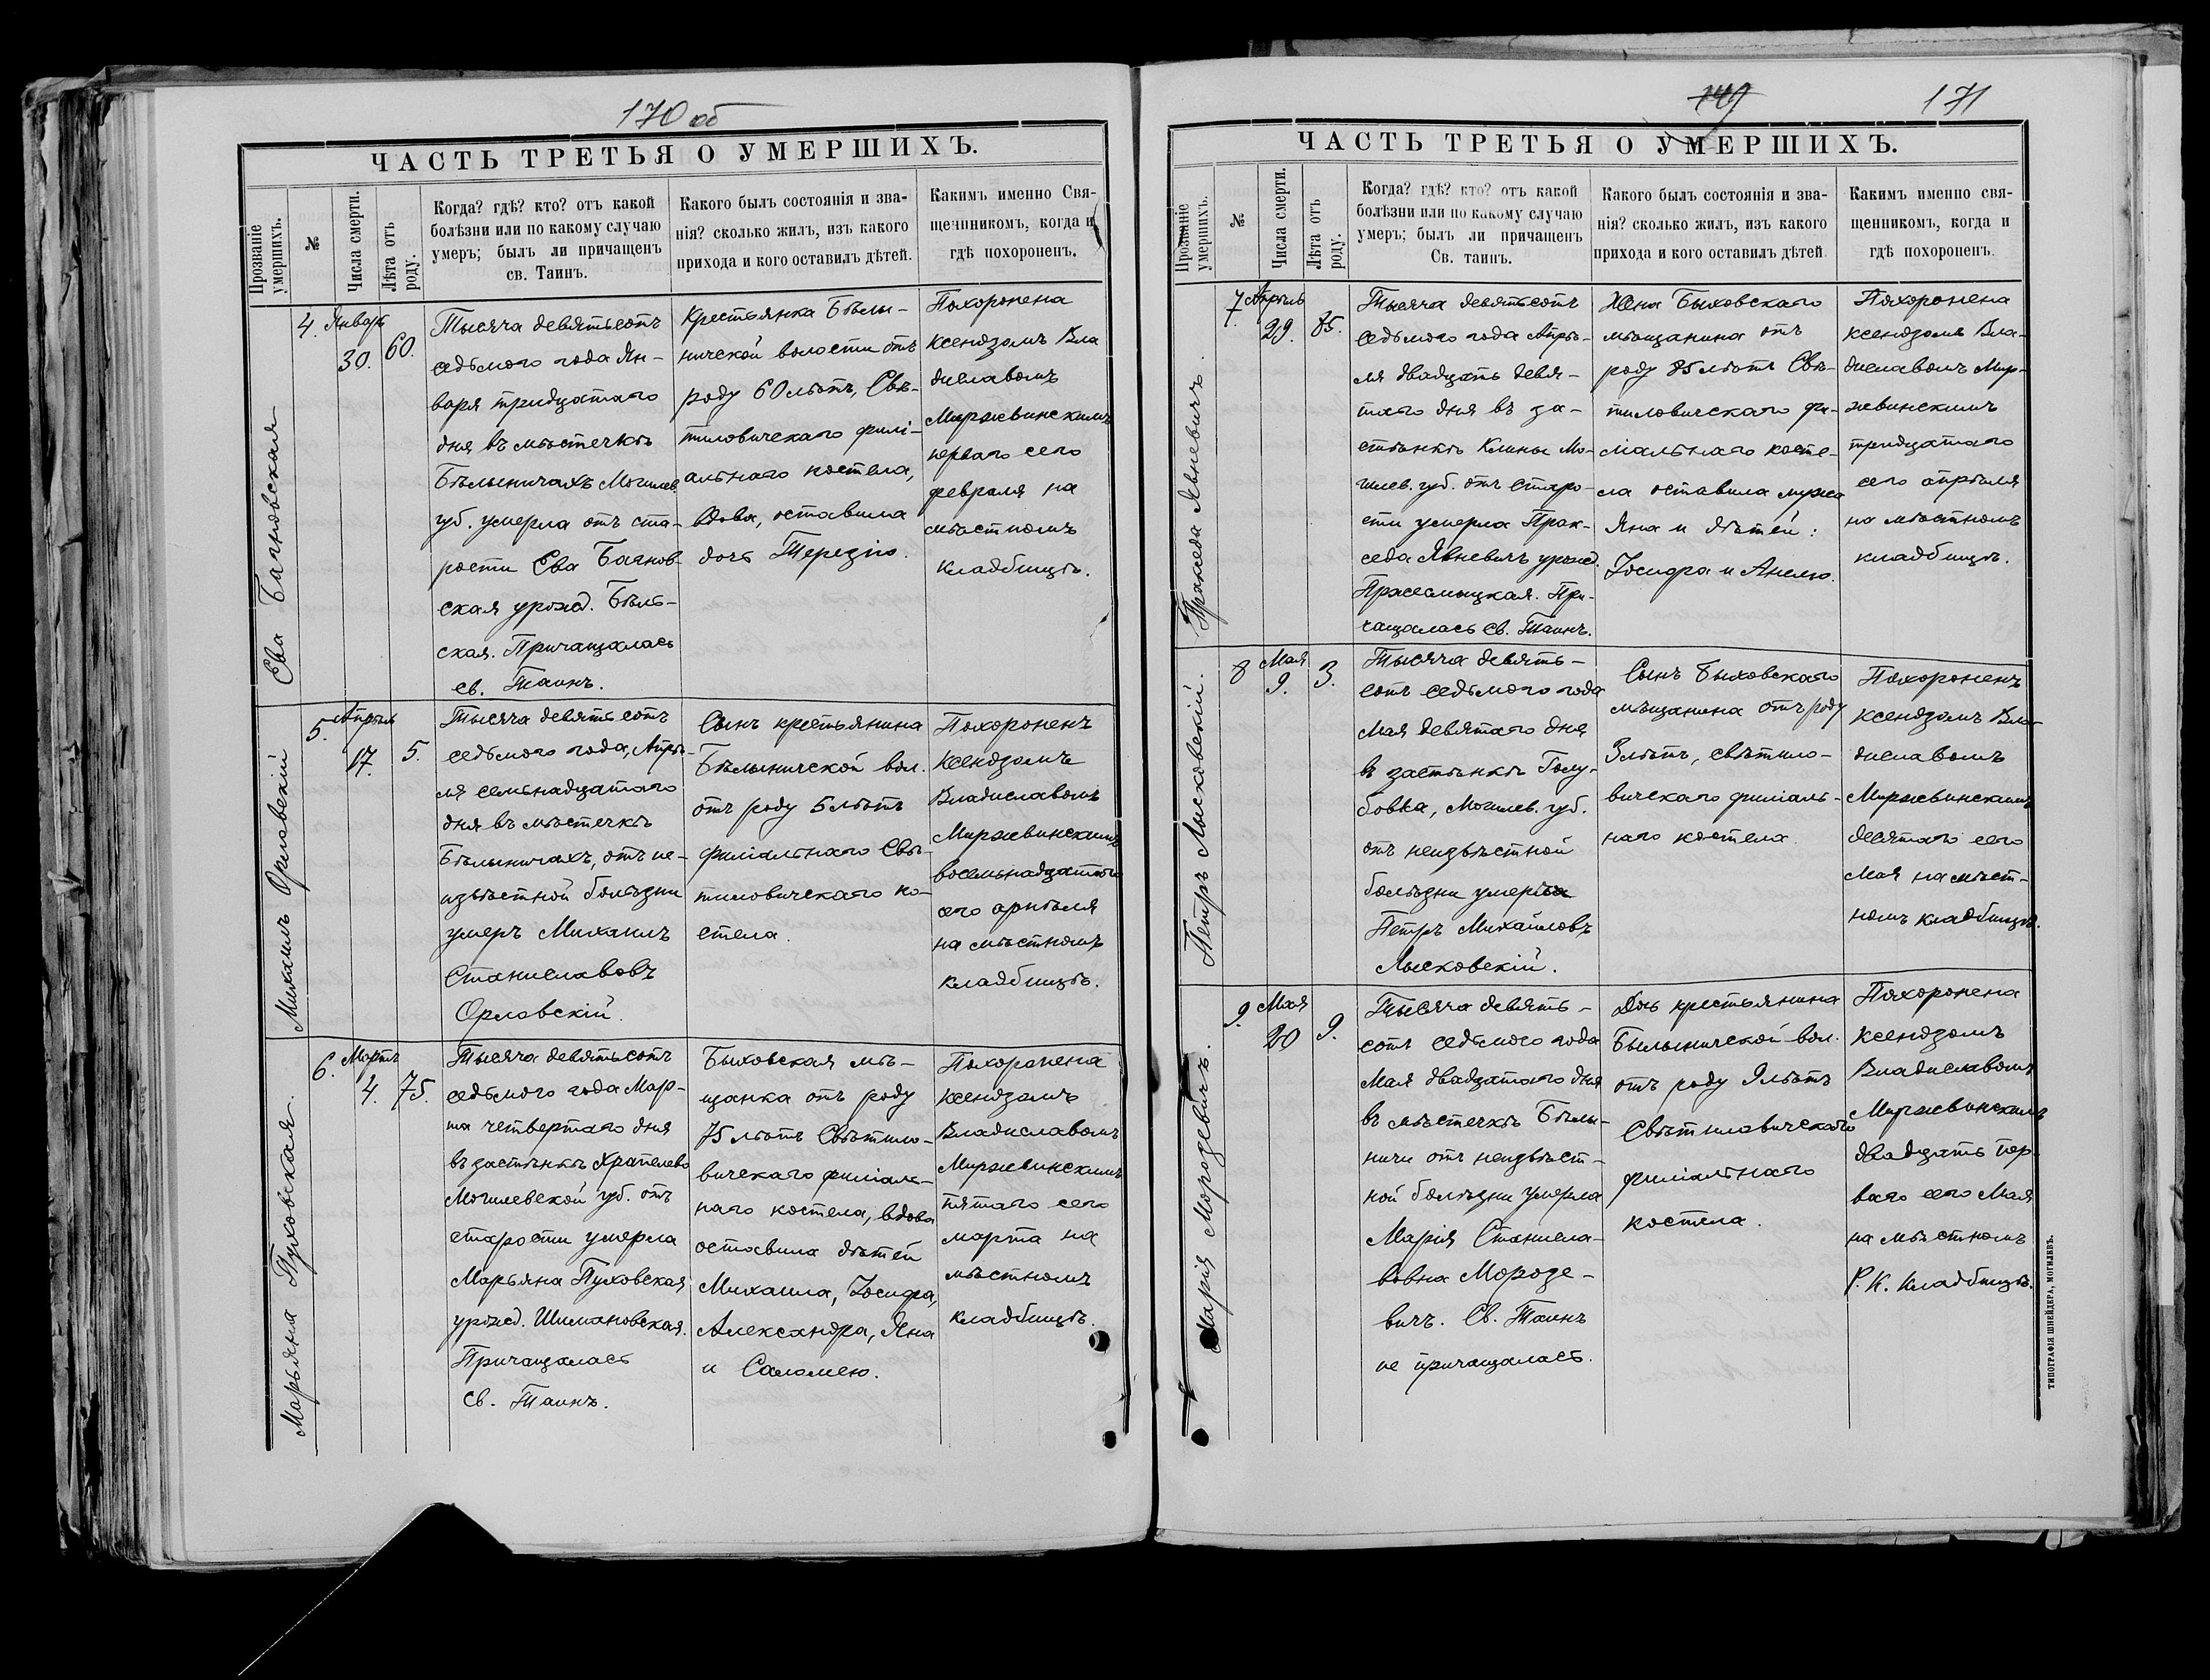 170 об
ЧАСТЬ ТРЕТЬЯ О УМЕРШИХЪ.
Прозваніе умершихъ.
№
Числа смерти.
Лѣта отъ роду.
Когда? гдѣ? кто? отъ какой
болѣзни или по какому случаю
умеръ; былъ ли причащенъ
св. Таинъ.
Какого былъ состоянія и зва-
нія? сколько жилъ, изъ какого
прихода и кого оставилъ дѣтей.
Каким именно Свя-
щенникомъ, когда и
гдѣ похороненъ.
Ева Багновская
4.
Январь
30.
60.
Тысяча девятьсотъ
седьмого года Ян-
варя тридцатаго
дня въ мѣстечкѣ
Бѣлыничахъ Могилев.
губ. умерла отъ ста-
рости Ева Багнов-
ская урожд. Бѣль-
ская. Причащалась
св. Таинъ.
Крестьянка Бѣлы-
ничской волости отъ
роду 60 лѣтъ, Свѣ-
тиловичскаго филі-
альнаго костела,
вдова, оставила
дочь Терезію.
Похоронена
ксендзомъ Вла
диславомъ
Миржвинскимъ
перваго сего
февраля на
мѣстномъ
кладбищѣ.
Михаилъ Орловскій
5.
Апрѣль
17.
5.
Тысяча девятьсотъ
седьмого года, Апрѣ-
ля семьнадцатаго
дня въ мѣстечкѣ
Бѣлыничахъ, отъ не-
извѣстной болѣзни
умеръ Михаилъ
Станиславовъ
Орловскій.
Сынъ крестьянина
Бѣлыничской вол.
отъ роду 5 лѣтъ
филіальнаго Свѣ-
тиловичскаго ко-
стела.
Похороненъ
ксендзомъ
Владиславомъ
Миржвинскимъ
восемьнадцатаго
сего апрѣля
на мѣстномъ
кладбищѣ.
Марьяна Пуховская.
6.
Мартъ
4.
75.
Тысяча девятьсотъ
седьмого года Мар-
та четвертаго дня
въ застѣнкѣ Храпелево
Могилевской губ. отъ
старости умерла
Марьяна Пуховская
урожд. Шимановская.
Причащалась
св. Таинъ.
Быховская мѣ-
щанка отъ роду
75 лѣтъ Свѣтило-
вичскаго филіаль-
наго костела, вдова
оставила дѣтей
Михаила, Іосифа,
Александра, Яна
и Саломею.
Похоронена
ксендзомъ
Владиславомъ
Миржвинскимъ
пятаго сего
марта на
мѣстномъ
кладбищѣ.
149
171
ЧАСТЬ ТРЕТЬЯ О УМЕРШИХЪ.
Прозваніе умершихъ.
№
Числа смерти.
Лѣта отъ роду.
Когда? гдѣ? кто? отъ какой
болѣзни или по какому случаю
умеръ; былъ ли причащенъ
Св. таинъ.
Какого былъ состоянія и зва-
нія? сколько жилъ, изъ какого
прихода и кого оставилъ дѣтей
Какимъ именно свя-
щенникомъ, когда и
гдѣ похороненъ.
Пракседа Явневичъ.
7.
Апрѣль
29.
85.
Тысяча девятьсотъ
седьмого года Апрѣ-
ля двадцать девя-
таго дня въ за-
стѣнкѣ Клины Мо-
гилев. губ. отъ старо-
сти умерла Прак-
седа Явневичъ урожд.
Пржесмыцкая. При-
чащалась св. Таинъ.
Жена Быховскаго
мѣщанина отъ
роду 85 лѣтъ Свѣ-
тиловичскаго фи-
ліальнаго косте-
ла оставила мужа
Яна и дѣтей:
Іосифа и Анелю.
Похоронена
ксендзомъ Вла-
диславомъ Мир-
жвинскимъ
тридцатаго
сего апрѣля
на мѣстномъ
кладбищѣ.
Петръ Лысковскій.
8
Мая
9.
3.
Тысяча девять-
сотъ седьмого года
Мая девятаго дня
въ застѣнкѣ Голу-
бовка, Могилев. губ.
отъ неизвѣстной
болѣзни умеръ
Петръ Михайловъ
Лысковскій.
Сынъ Быховскаго
мѣщанина отъ роду
3 лѣтъ, свѣтило-
вичскаго филіаль-
наго костела.
Похороненъ
ксендзомъ Вла-
диславомъ
Миржвинскимъ
девятаго сего
Мая на мѣст-
номъ кладбищѣ.
Марія Мороздевичъ.
9.
Мая
20
9.
Тысяча девять-
сотъ седьмого года
Мая двадцатаго дня
въ мѣстечкѣ Бѣлы-
ничи отъ неизвѣст-
ной болѣзни умерла
Марія Станисла-
вовна Морозе-
вичъ. Св. Таинъ
не причащалась.
Дочь крестьянина
Бѣлыничской вол.
отъ роду 9 лѣтъ
Свѣтиловичскаго
филіальнаго
костела.
Похоронена
ксендзомъ
Владиславомъ
Миржвинскимъ
двадцать пер-
ваго сего Мая
на мѣстномъ
Р. К. кладбищѣ.
ТИПОГРАФІЯ ШНЕЙДЕРА, МОГИЛЕВЪ.